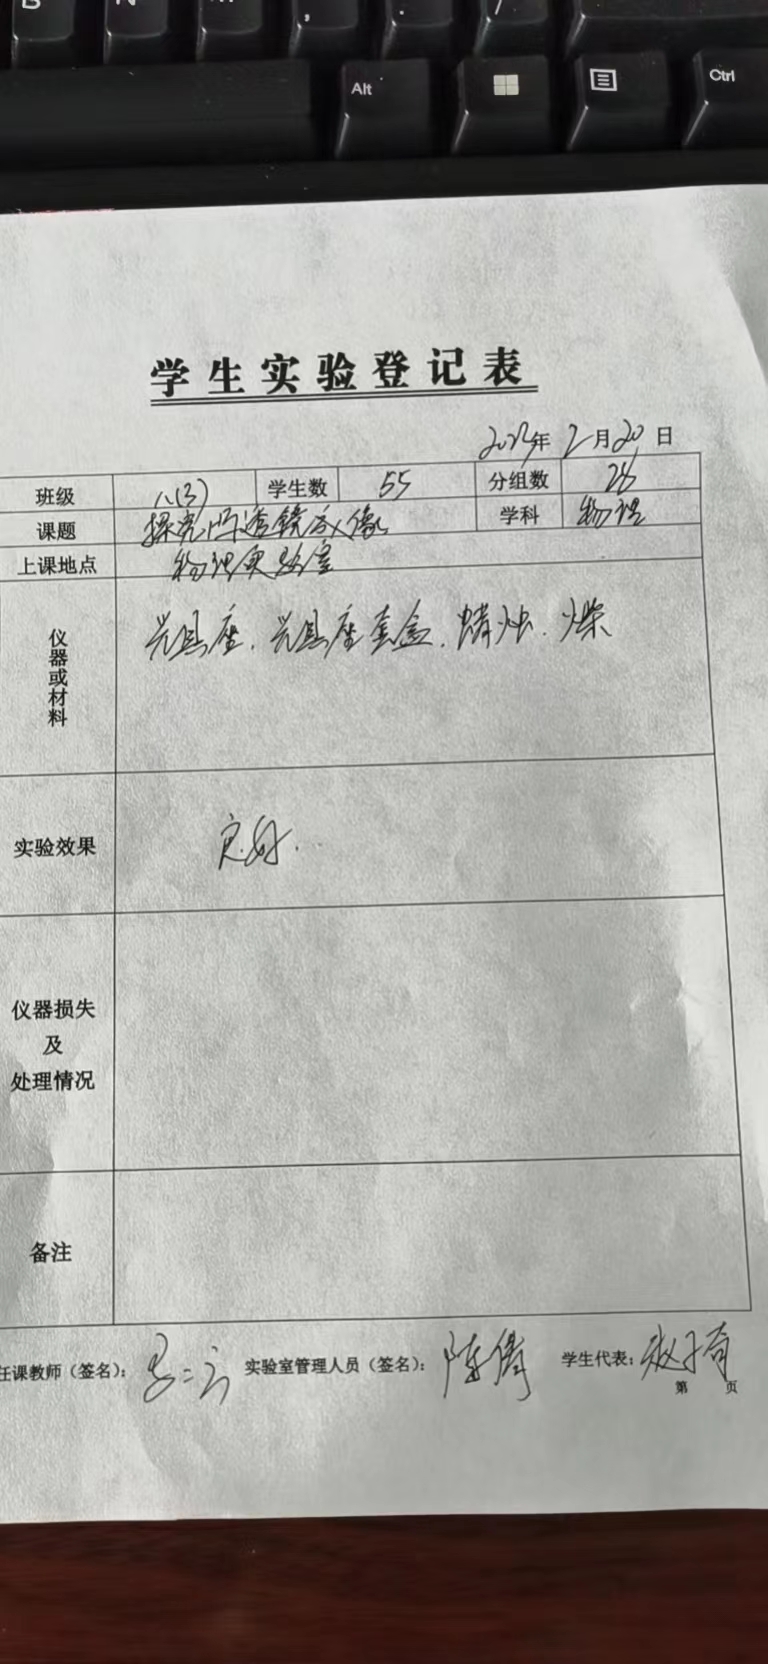 B N M , . /
Alt Ctrl
学生实验登记表
年 2月20日
班级 八(3) 学生数 55 分组数 28
课题 探究凸透镜成像 学科 物理
上课地点 物理实验室
仪器或材料 光具座、光具座套盒、蜡烛、火柴
实验效果 良好.
仪器损失
及
处理情况
备注
任课教师（签名）： 实验室管理人员（签名）： 陈倩 学生代表：
第 页